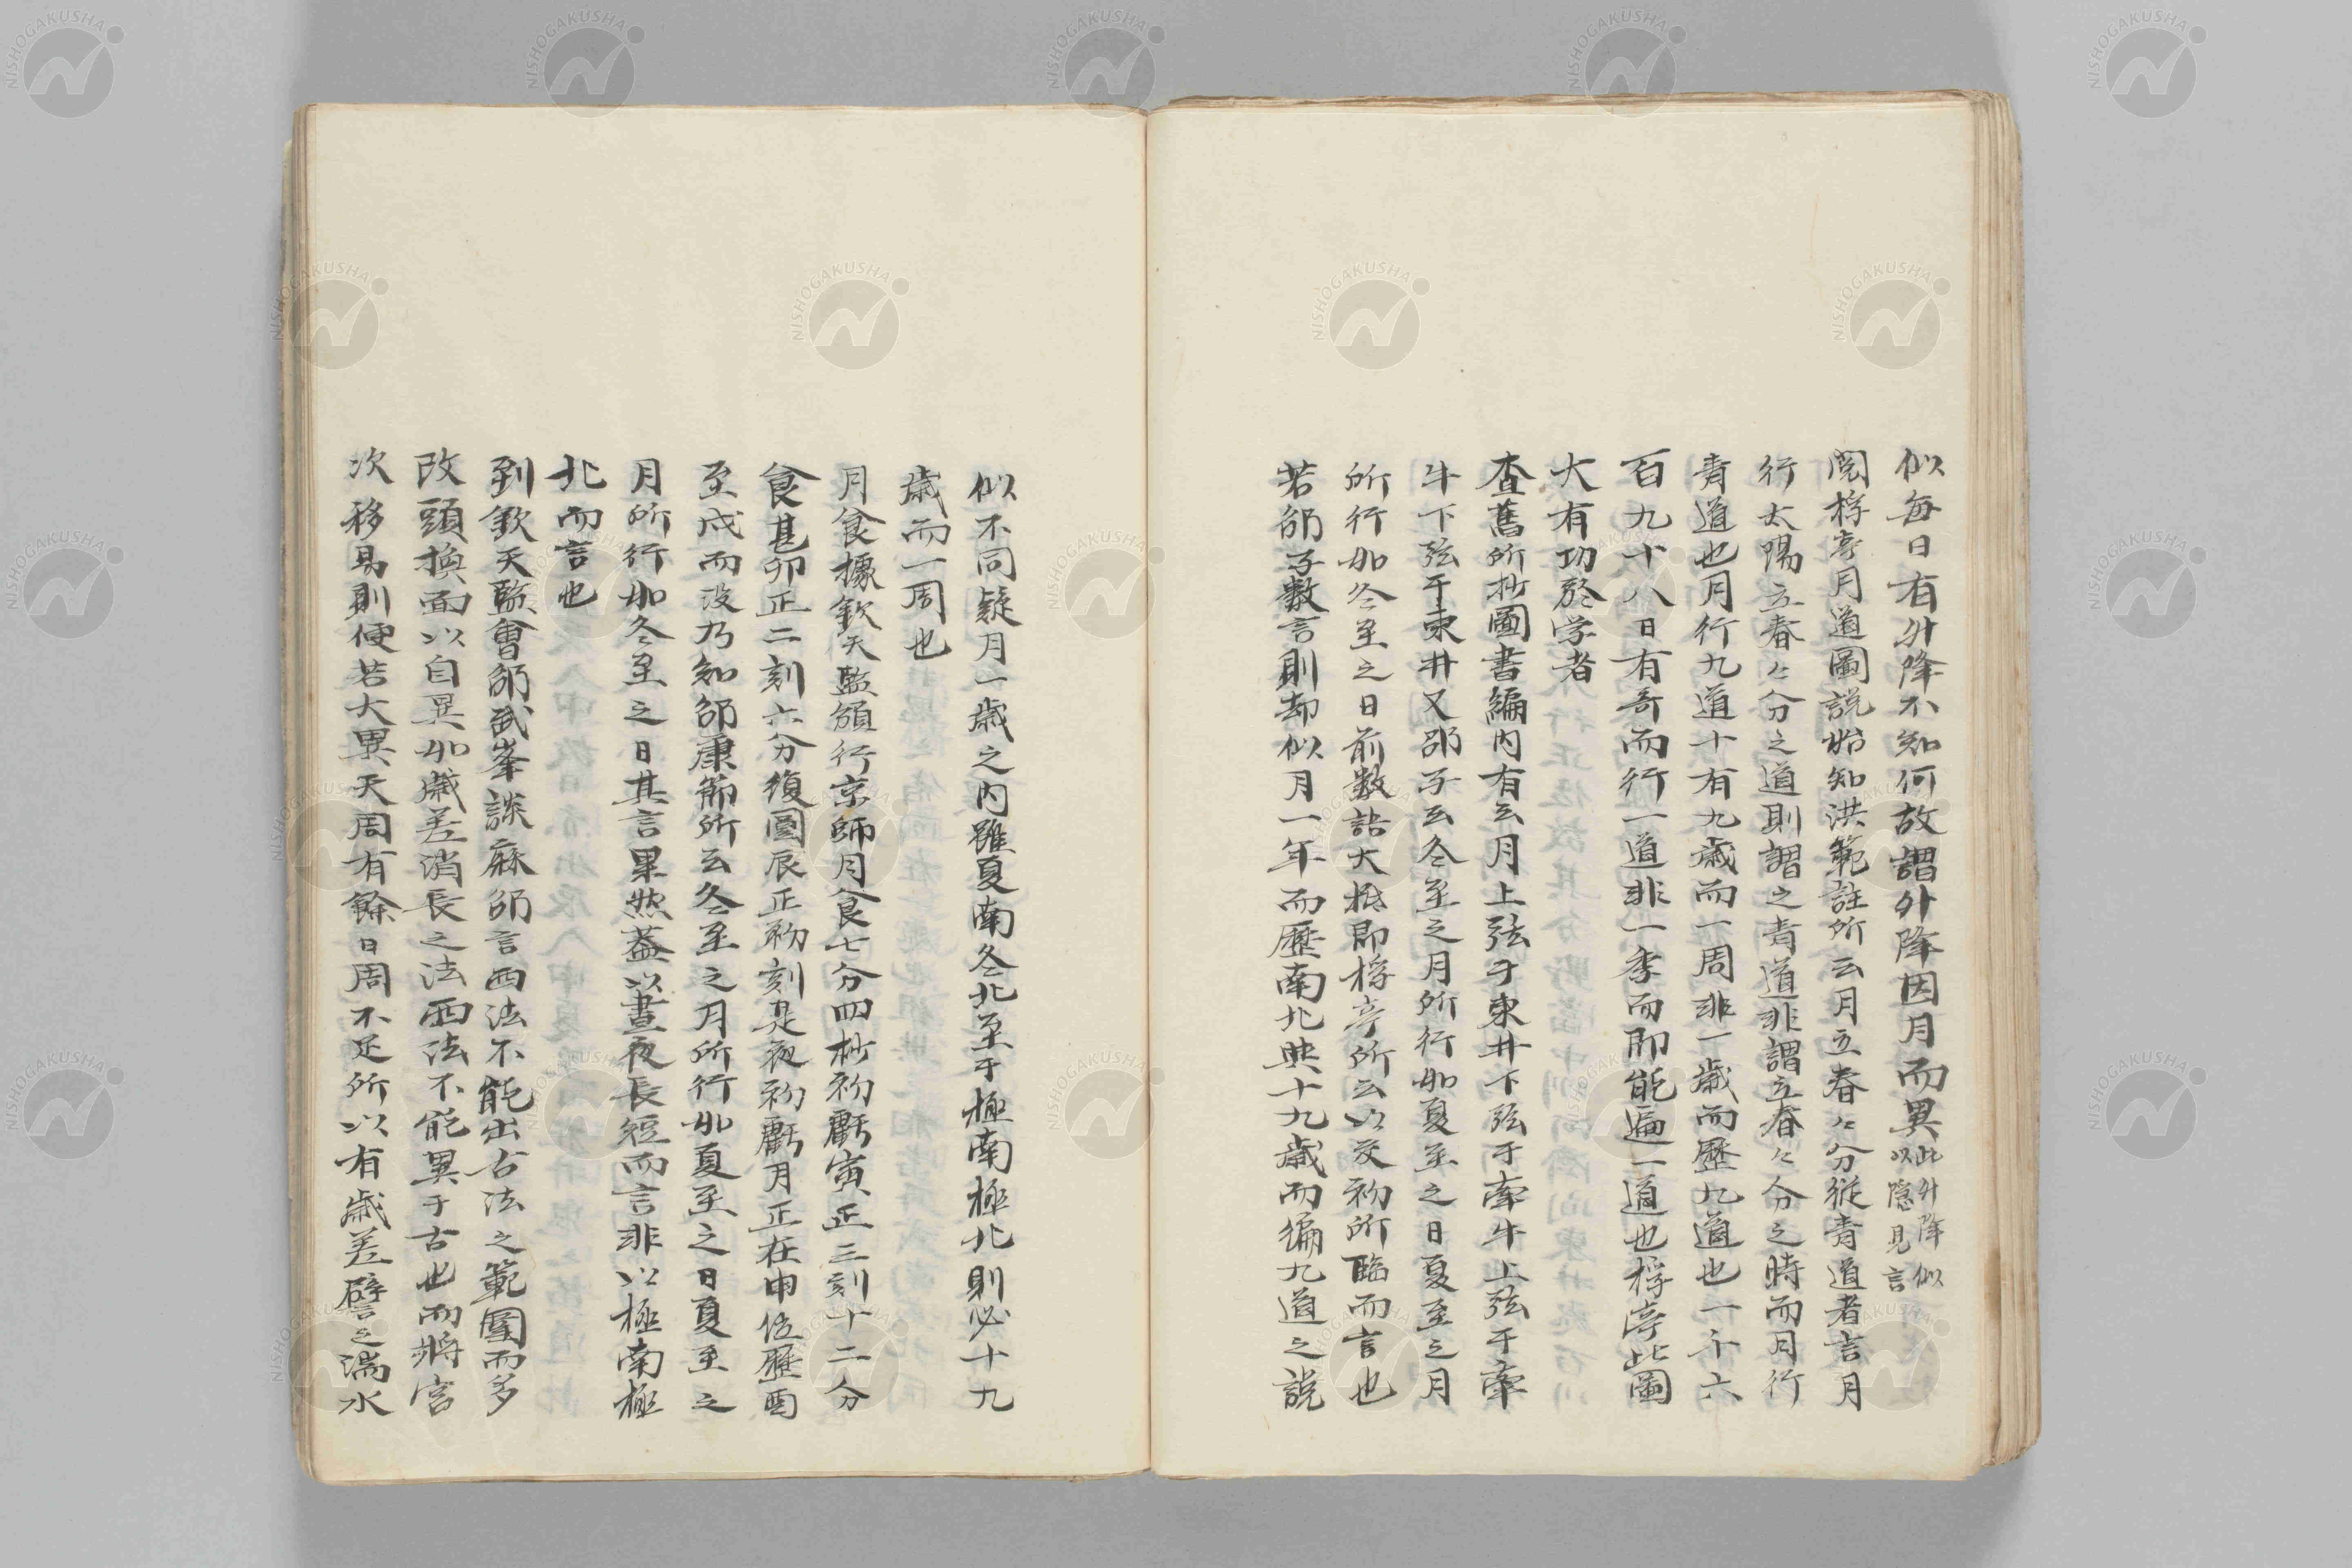 似每日有升降不知何故謂升降因月而異此升降似
以隱見言
閱桴亭月道圖説始知洪範註所云月立春々分從青道者言月
行太陽立春々分之道則謂之青道非謂立春々分之時而月行
青道也月行九道十有九歳而一周非一歳而歷九道也一千六
百九十八日有奇而行一道非一季而即能遍一道也桴亭此圖
大有功於学者
查舊所抄圖書編内有云月上弦于東井下弦于牽牛上弦于牽
牛下弦于東井又邵子云冬至之月所行如夏至之日夏至之月
所行如冬至之日前數語大抵即桴亭所云以交初所臨而言也
若邵子數言則却似月一年而歷南北與十九歳而徧九道之説
似不同疑月一歳之内雖夏南冬北至于極南極北則必十九
歳而一周也
月食據欽天監頒行京師月食七分四杪初虧寅正三刻十二分
食甚卯正二刻六分復圓辰正初刻是夜初虧月正在申位歷酉
至戌而没乃知邵康節所云冬至之月所行如夏至之日夏至之
月所行如冬至之日其言果然蓋以晝夜長短而言非以極南極
北而言也
到欽天監會邵武峯談麻邵言西法不能出古法之範圍而多
改頭換面以自異如歳差消長之法西法不能異于古也而將宮
次移易則便若大異天周有餘日周不足所以有歳差譬之湍水
NISHOGAKUSHA